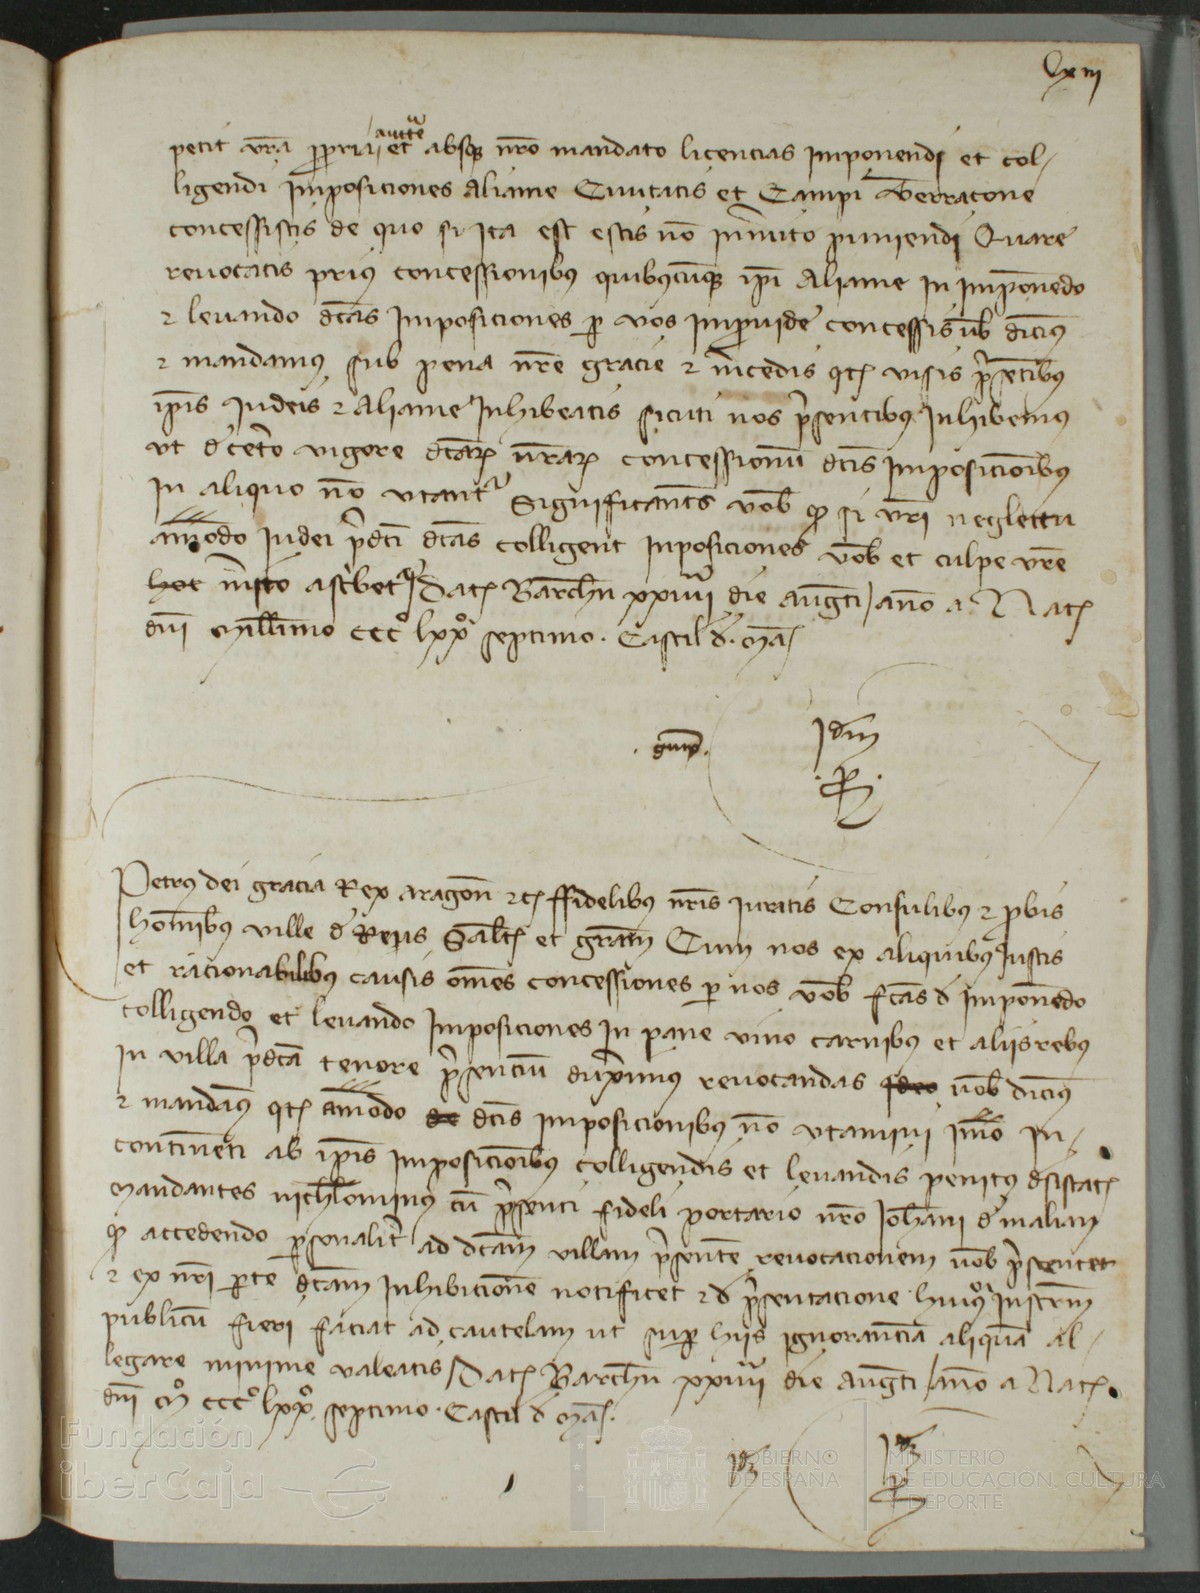 lxiii
petit vra ppria auctte et absqz nro mandato licencias imponendi et col-
ligendi imposiciones aliame Ciuitatis et Campi Terracone
concessistis de quo si ita est estis no inmito puniendi Quare
reuocatis prius concessionibus quibuscuqz ipi aliame in imponedo
et leuando dcas imposiciones p vos impuide concessis vob dicim9
et mandamus sub pena nre gracie et mcedis qt visis psetibus
ipis iudeis et aliame inhibeatis sicuti nos psentibus inhibemus
vt d cetero vigore dcaru nraru concessionu dcis imposicioibus
in aliquo no vtant Significantes vob q si vri neglettu
amodo iudei pdci dcas colligent inposiciones vob et culpe vre
hoc mito ascbet Dat Barchn xxiiii die augti ano a Nat
dni Millimo ccc lxx septimo. Castil d. Ma
guill
Idm
P
Petrus dei gracia Rex aragon etc ffidelibus nris iuratis Consulibus et pbis
hominibus ville d Reus Salt et gram Cum nos ex aliquibus iustis
et racionabilibus causis omes concessiones p nos vob fcas d imponedo
colligendo et leuando imposiciones in pane vino carnibus et aliis rebus
in villa pdca tenore psenciu duximus reuocandas ideo vob dicim9
et mandam9 qt amodo de dcis imposicionibus no vtamini imo in-
continenti ab ipis imposicioibus colligendis et leuandis penitus dsistat
Mandantes nichilominus cu psenti fideli portario nro Iohani d malian
q accedendo psonalit ad dcam villam psente reuocacionem vob psentet
et ex nri pte dcam inhibicione notificet et d psentacione hui9 instrm
publicu fieri faciat ad cautelam ut sup hiis ignorancia aliqua al-
legare minime valeatis Dat Barchn xxiiii die augti ano a Nat
dni M ccc lxx septimo. Castil d Ma.
Idz
Idz
P
Fundación
iberCaja
GOBIERNO
DE ESPAÑA
MINISTERIO
DE EDUCACIÓN, CULTURA
Y DEPORTE